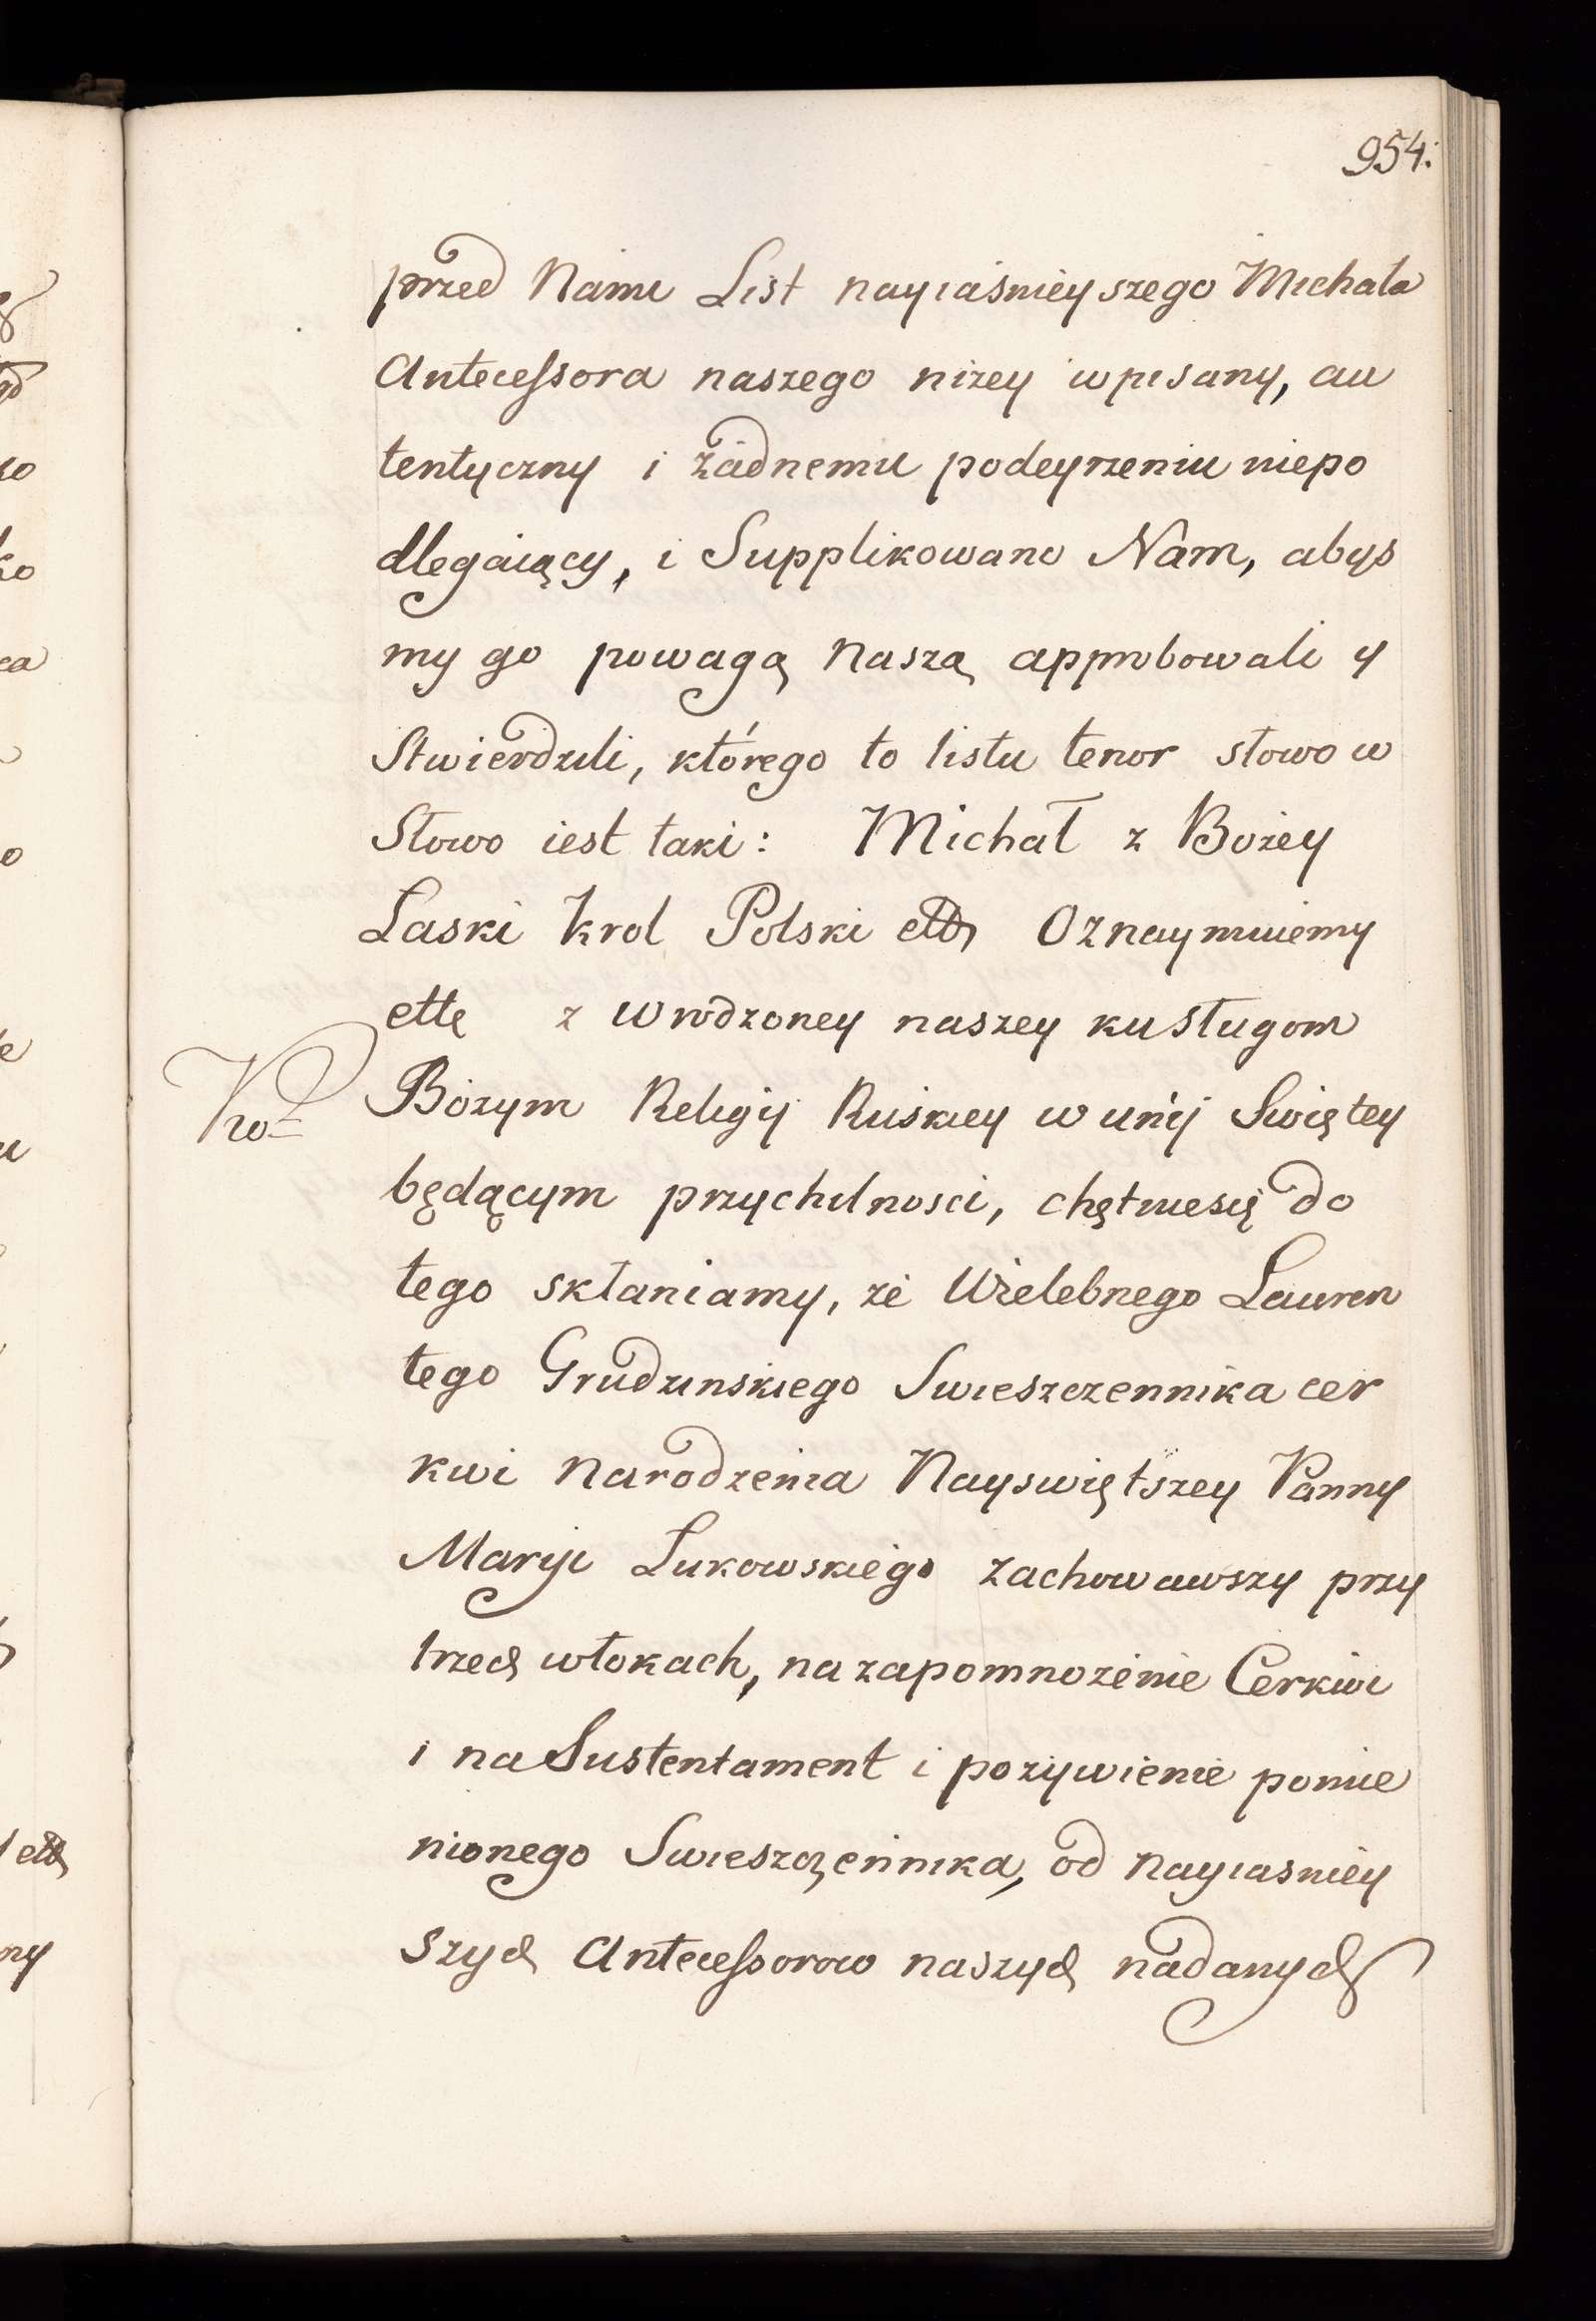 954.
przed Nami List nayiaśnieyszego Michała
Antecessora naszego niżey wpisany, au
tentyczny i żadnemu podeyrzeniu niepo
dlegaiący, i Supplikowano Nam, abyś
my go powagą Naszą approbowali y
Stwierdzili, którego to listu tenor słowo w
Słowo iest taki: Michał z Bożey
Laski Krol Polski ettc Oznaymuiemy
ettc z wrodzoney naszey ku sługom
Bożym Religij Ruskiey w unij Swiętey
będącym przychilnosci, chętnie się do
tego skłaniamy, że Wielebnego Lauren
tego Grudzinskiego Swieszczennika cer
kwi Narodzenia Nayswiętszey Panny
Maryi Lukowskiego zachowawszy przy
trzech włokach, na zapomnożenie Cerkwi
i na Sustentament i pożywienie pomie
nionego Swieszczennika, od Nayiasniey
szych Antecessorow naszych nadanych